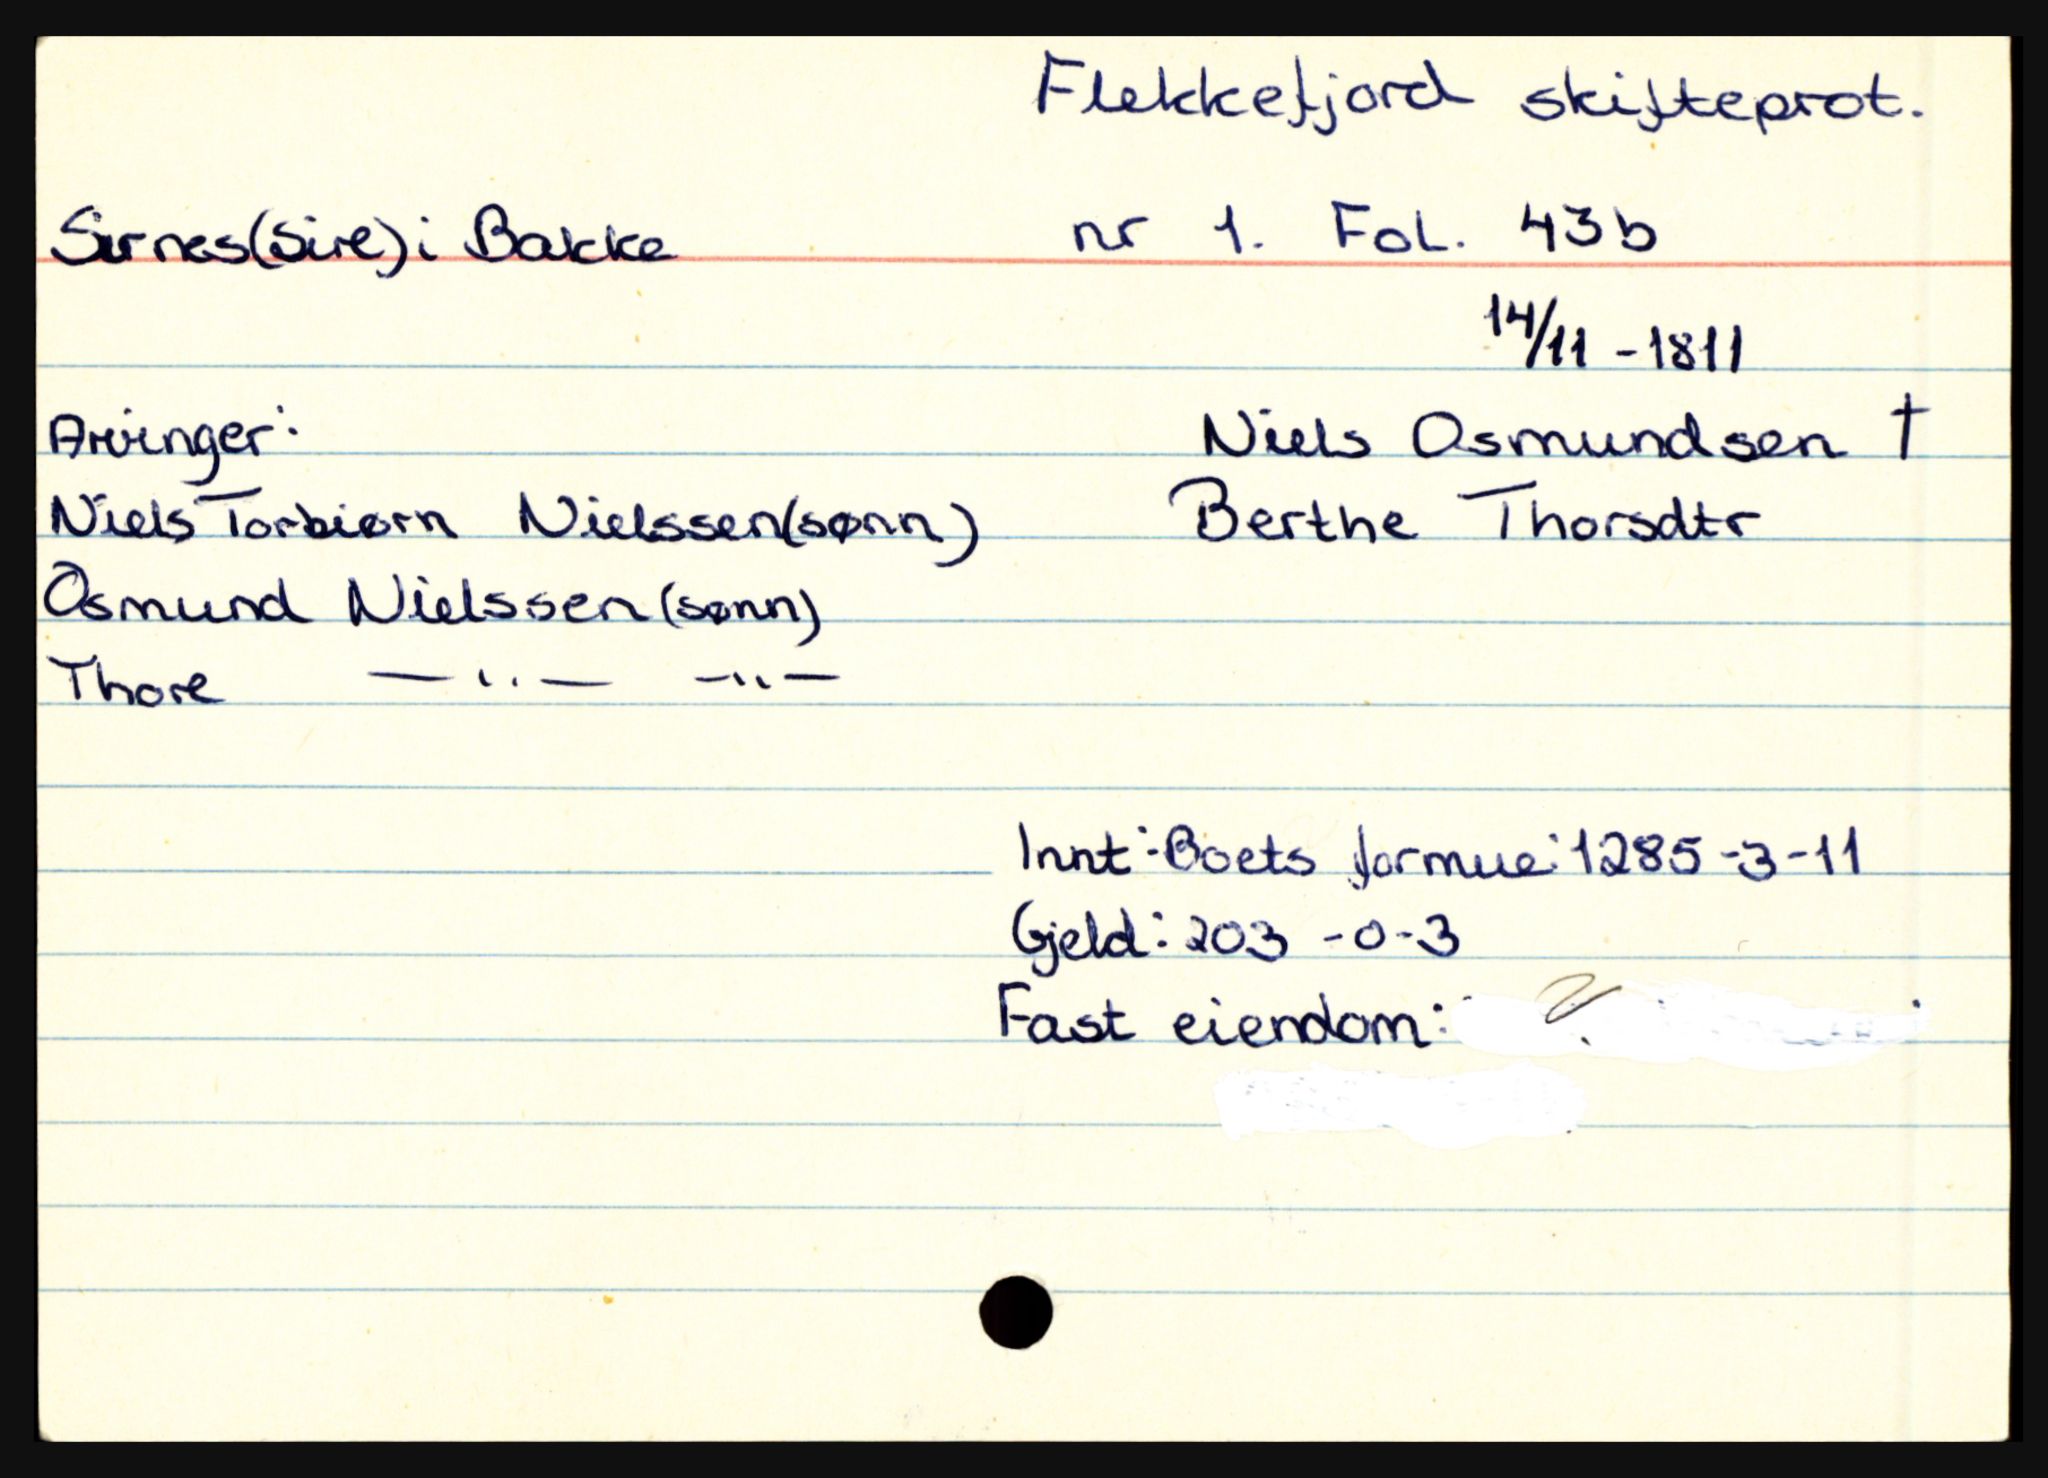 Flekkefjord skifteprot.
Sirnes (Sire) i Bakke nr 1. Fol. 43b
14/11 - 1811
Arvinger: Niels Osmundsen †
Niels Torbiørn Nielssen (sønn) Berthe Thorsdtr
Osmund Nielssen (sønn)
Thore — " — — " —
Innt: Boets formue: 1285-3-11
Gjeld: 203 - 0 - 3
Fast eiendom: